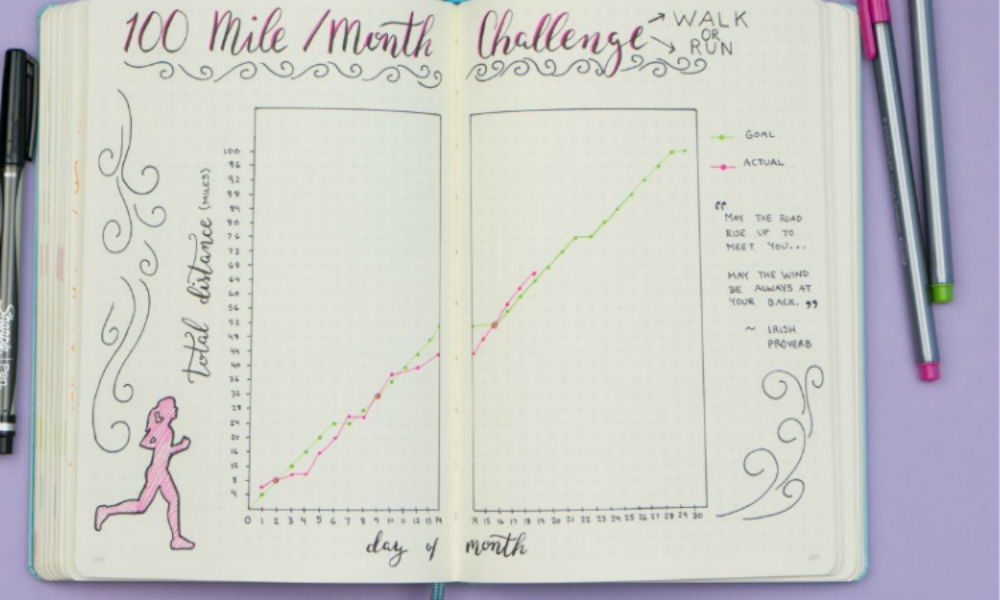 100 Mile / Month Challenge
WALK
OR
RUN
GOAL
ACTUAL
100
96
92
88
84
80
76
72
68
64
60
56
52
48
44
40
36
32
28
24
20
16
12
8
4
total distance (MILES)
0 1 2 3 4 5 6 7 8 9 10 11 12 13 14
14 15 16 17 18 19 20 21 22 23 24 25 26 27 28 29 30
day of month
“MAY THE ROAD
RISE UP TO
MEET YOU...
MAY THE WIND
BE ALWAYS AT
YOUR BACK.”
~ IRISH
PROVERB
Sharpie Pen